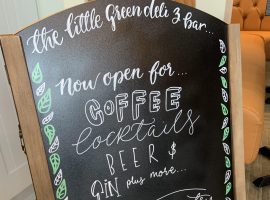 the little Green deli & bar...
Now open for...
COFFEE
Cocktails
BEER &
GIN plus more...